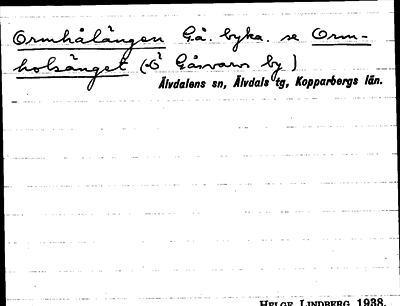 Ormhålängen Gå. byka. se Orm-
holsänget (Gåsvarvs by)
Älvdalens sn, Älvdals tg, Kopparbergs län.
HELGE LINDBERG 1938.